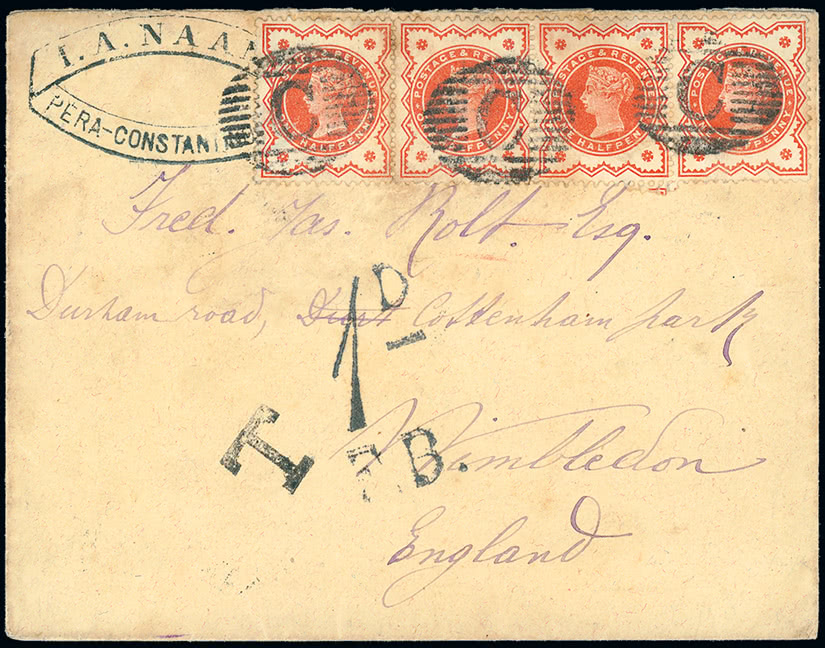 I. A. NAAN
PERA-CONSTANTI
POSTAGE & REVENUE
HALFPENNY
POSTAGE & REVENUE
HALFPENNY
POSTAGE & REVENUE
HALFPENNY
POSTAGE & REVENUE
HALFPENNY
C
C
C
Fred. Jas. Rolt. Esq.
Durham road, Cottenham park
Wimbledon
England
1D
T
F.B.